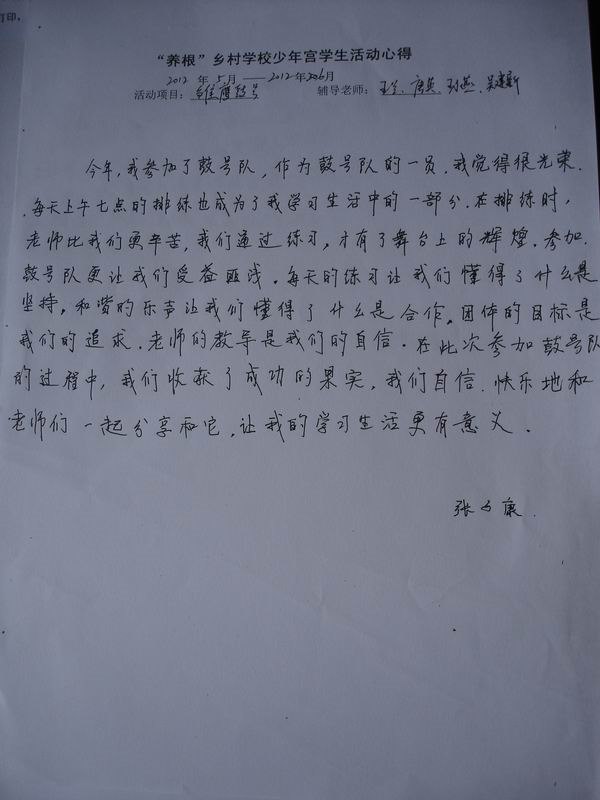 打印，
“养根”乡村学校少年宫学生活动心得
2012 年 5月 —— 2012年 6月
活动项目：雏鹰鼓号 辅导老师：王兰、唐英、孙燕、吴建新
今年，我参加了鼓号队，作为鼓号队的一员，我觉得很光荣。
每天上午七点的排练也成为了我学习生活中的一部分。在排练时，
老师比我们更辛苦，我们通过练习，才有了舞台上的辉煌。参加
鼓号队更让我们受益匪浅。每天的练习让我们懂得了什么是
坚持。和谐的乐声让我们懂得了什么是合作。团体的目标是
我们的追求。老师的教导是我们的自信。在此次参加鼓号队
的过程中，我们收获了成功的果实，我们自信、快乐地和
老师们一起分享和它，让我的学习生活更有意义。
张 康